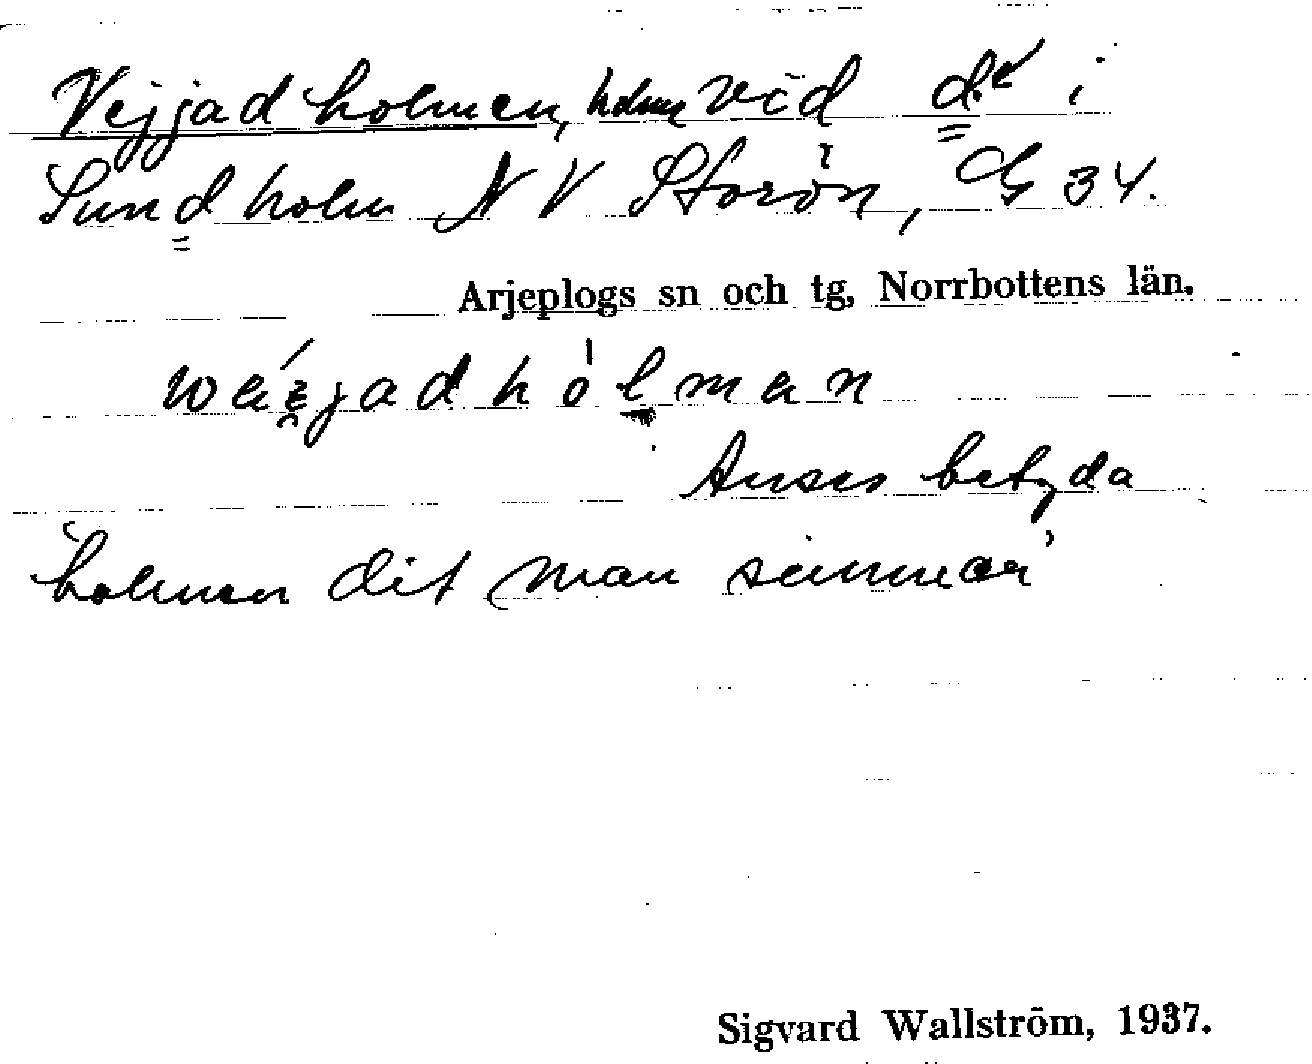 Vejjadholmen, holm vid d:e i
Sundholm N V Storön, G 34.
Arjeplogs sn och tg, Norrbottens län.
wäi̯jadhólman
Anses betyda
'holmen dit man simmar'
Sigvard Wallström, 1937.